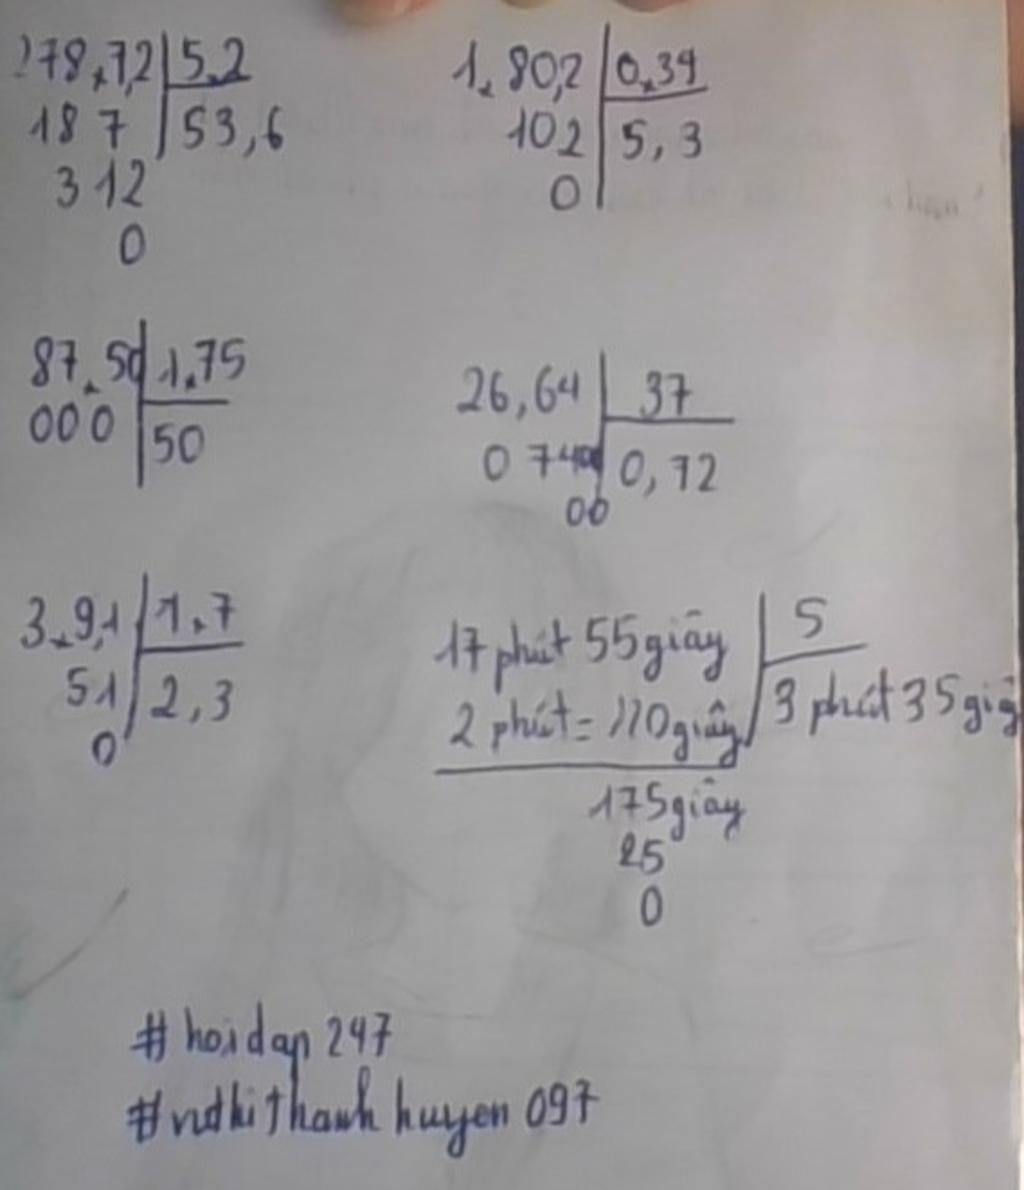 278,7,2 5,2
18 7 53,6
3 12
0
1,80,2 0,34
102 5,3
0
87,50 1,75
000 50
26,64 37
0 74 0,72
00
3,9,1 1,7
51 2,3
0
17 phút 55 giây 5
2 phút = 120 giây 3 phút 35 giâ
175 giây
25
0
# hoidap 247
# vuthithanh huyen 097